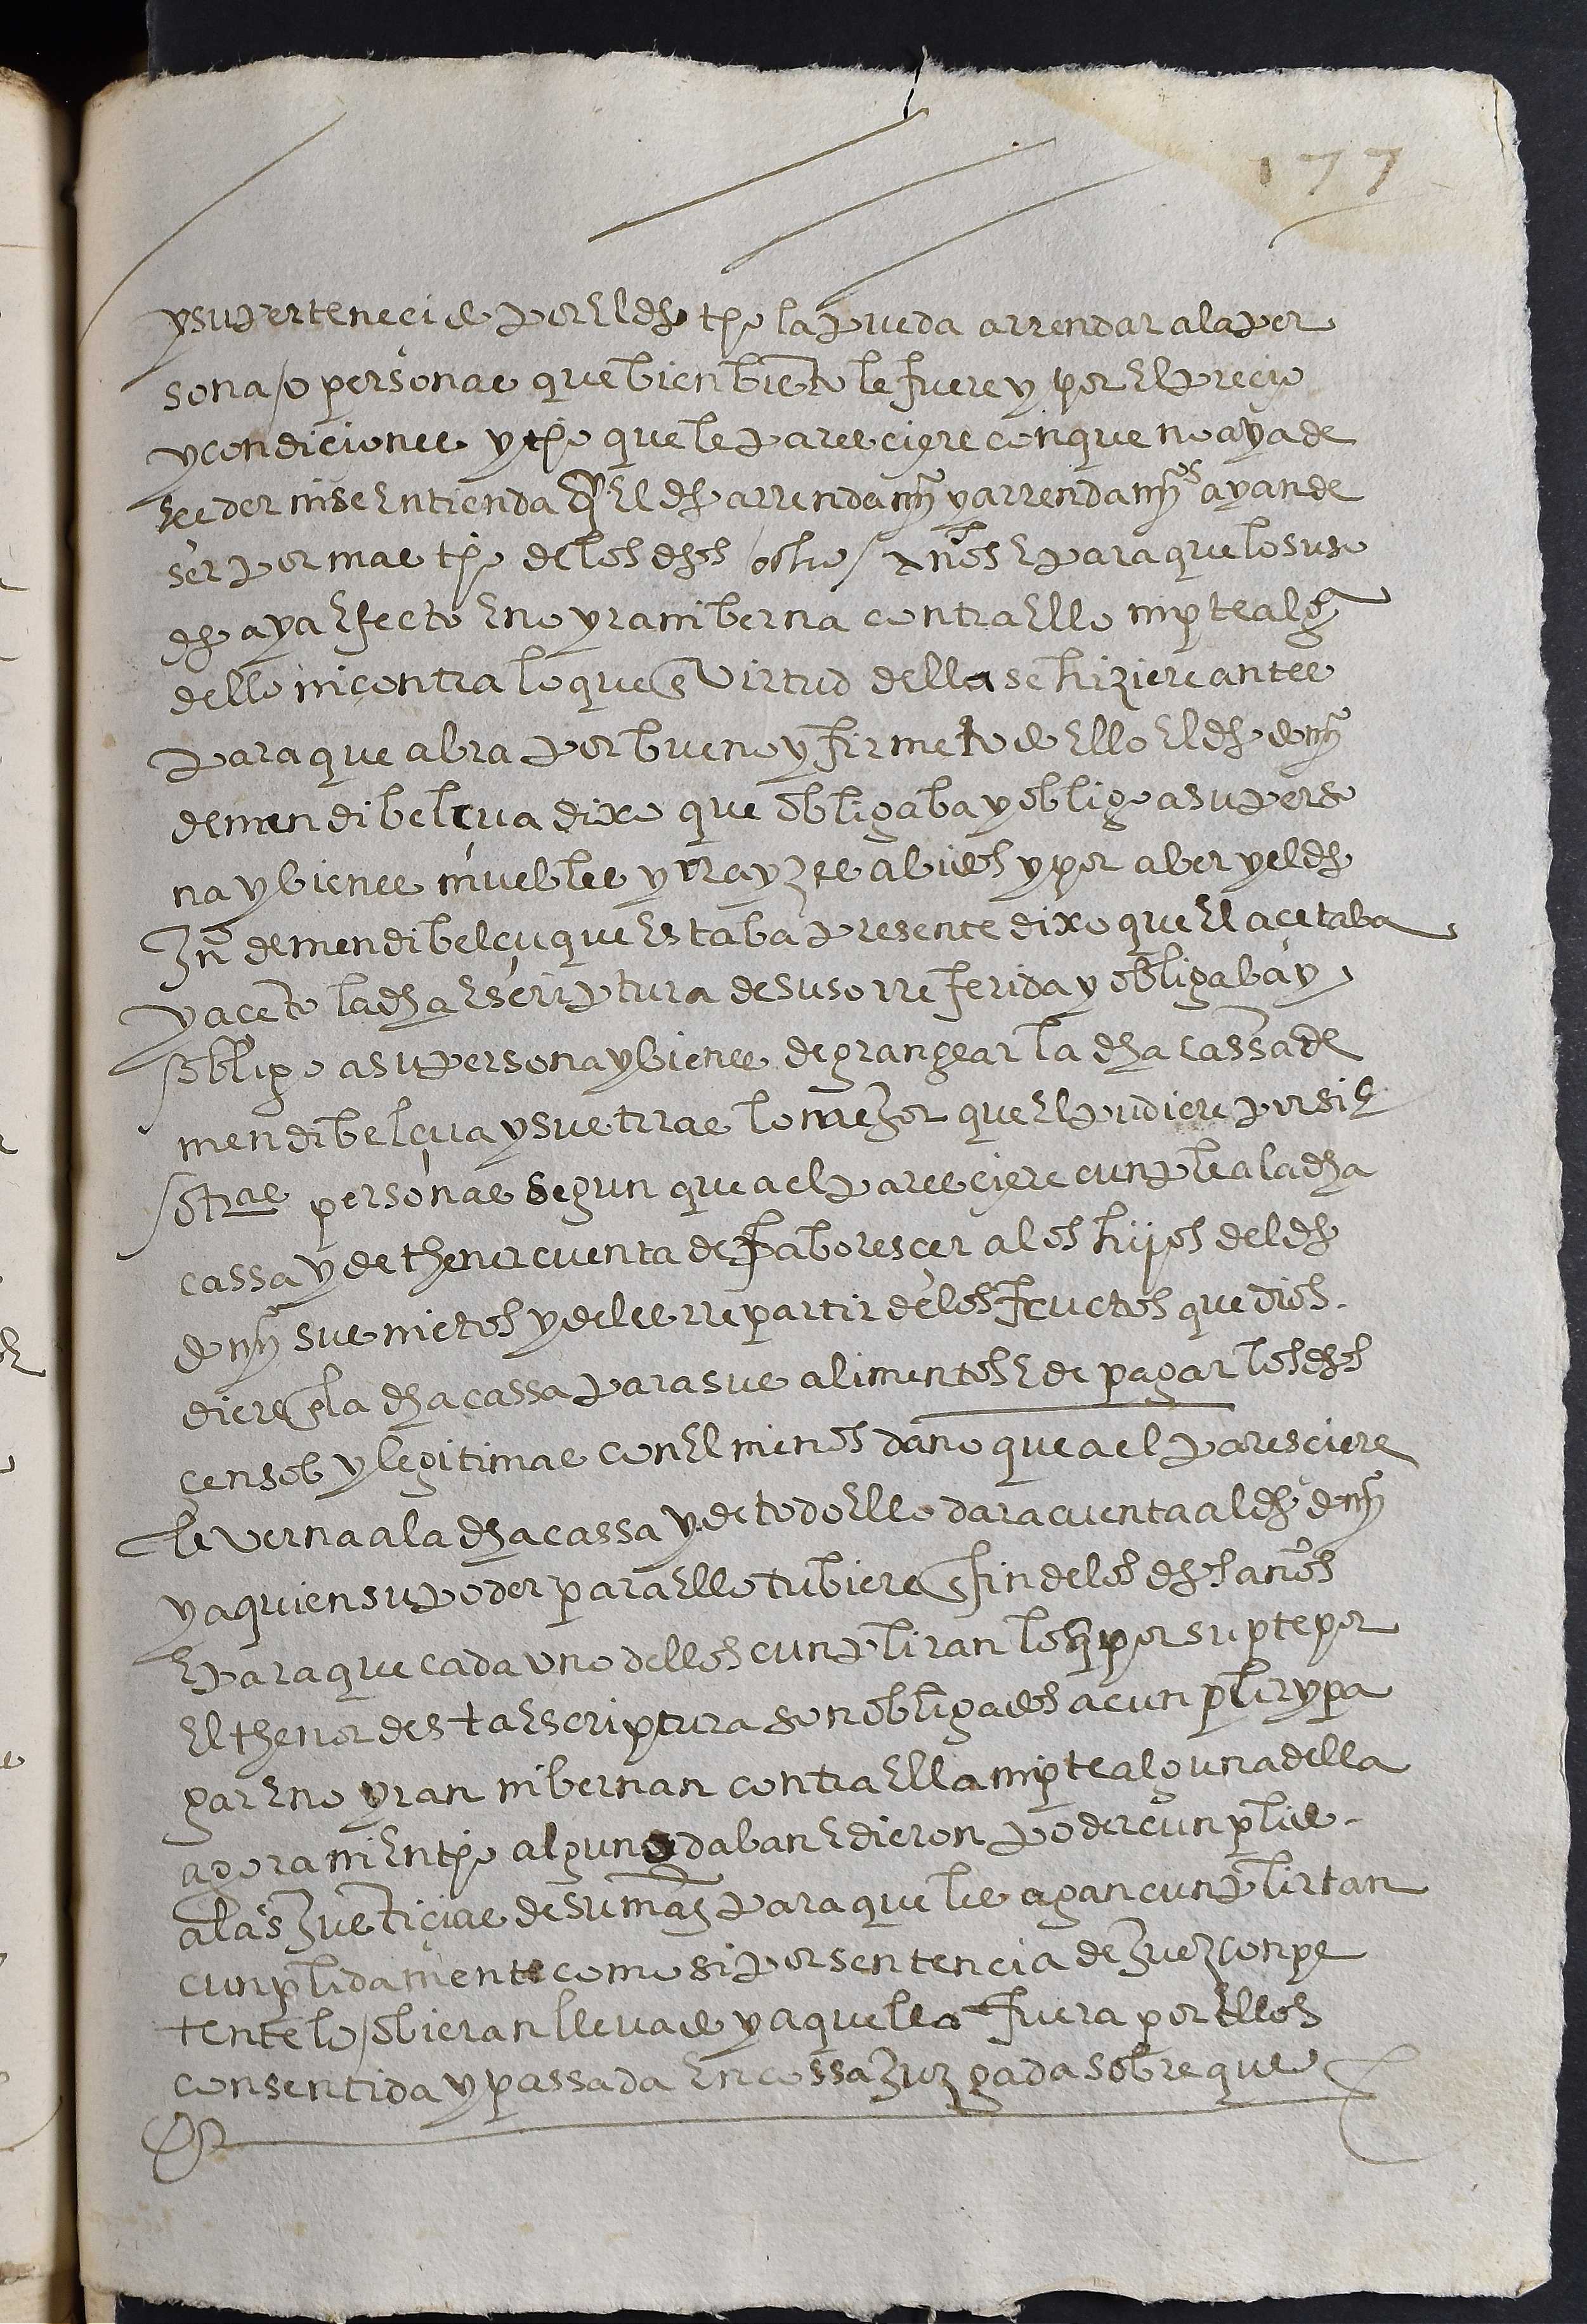 177
y su perteneçido por el dho tpo la pueda arrendar a la per
sona /o personas que bien bisto le fuere y por el preçio
y condiciones y tpo que le paresciere con que no aya de
eçeder ni se entienda q̃ el dho arrendamyº y arrendamyºs ayan de
ser por mas tpo de los dhos /ocho/ años E para que lo suso
dho aya Efecto E no yra ni berna contra Ello ni pte alga
dello ni contra lo que en virtud della se hiziere antes
para que abra por bueno y firme todo Ello El dho domyº
de mendibelçua dixo que obligaba y obligo a su perso
na y bienes muebles y rrayzes abidos y por aber y el dho
Juº de mendibelçu que Estaba presente dixo que El acetaba
y aceto la dha Escriptura de suso rreferida y obligaba y
/obligo a su persona y bienes de grangear la dha cassa de
mendibelçua y sus trras lo mejor que El pudiere por si E
/otras personas segun que a el paresciere cunple a la dha
cassa y de thener cuenta de faboresçer a los hijos del dho
domyº sus nietos y de les rrepartir de los fructos que dios
diere en la dha cassa para sus alimentos E de pagar los dhos
çensos y legitimas con El menos daño que a el paresciere
le verna a la dha cassa y de todo Ello dara cuenta al dho domyº
y a quien su poder para Ello tubiere en fin de los dhos años
E para que cada vno dellos cunpliran lo q̃ por su pte por
El thenor desta Escriptura son obligados a cunplir y pa
gar E no yran ni bernan contra Ella ni pte alguna della
agora ni En tpo alguno daban E dieron poder cunplido
a las Justiçias de su magd para que les agan cunplir tan
cunplidamente como si por sentencia de Juez conpe
tente lo /obieran lleuado y aquella fuera por Ellos
consentida y passada En cossa Juzgada sobre que